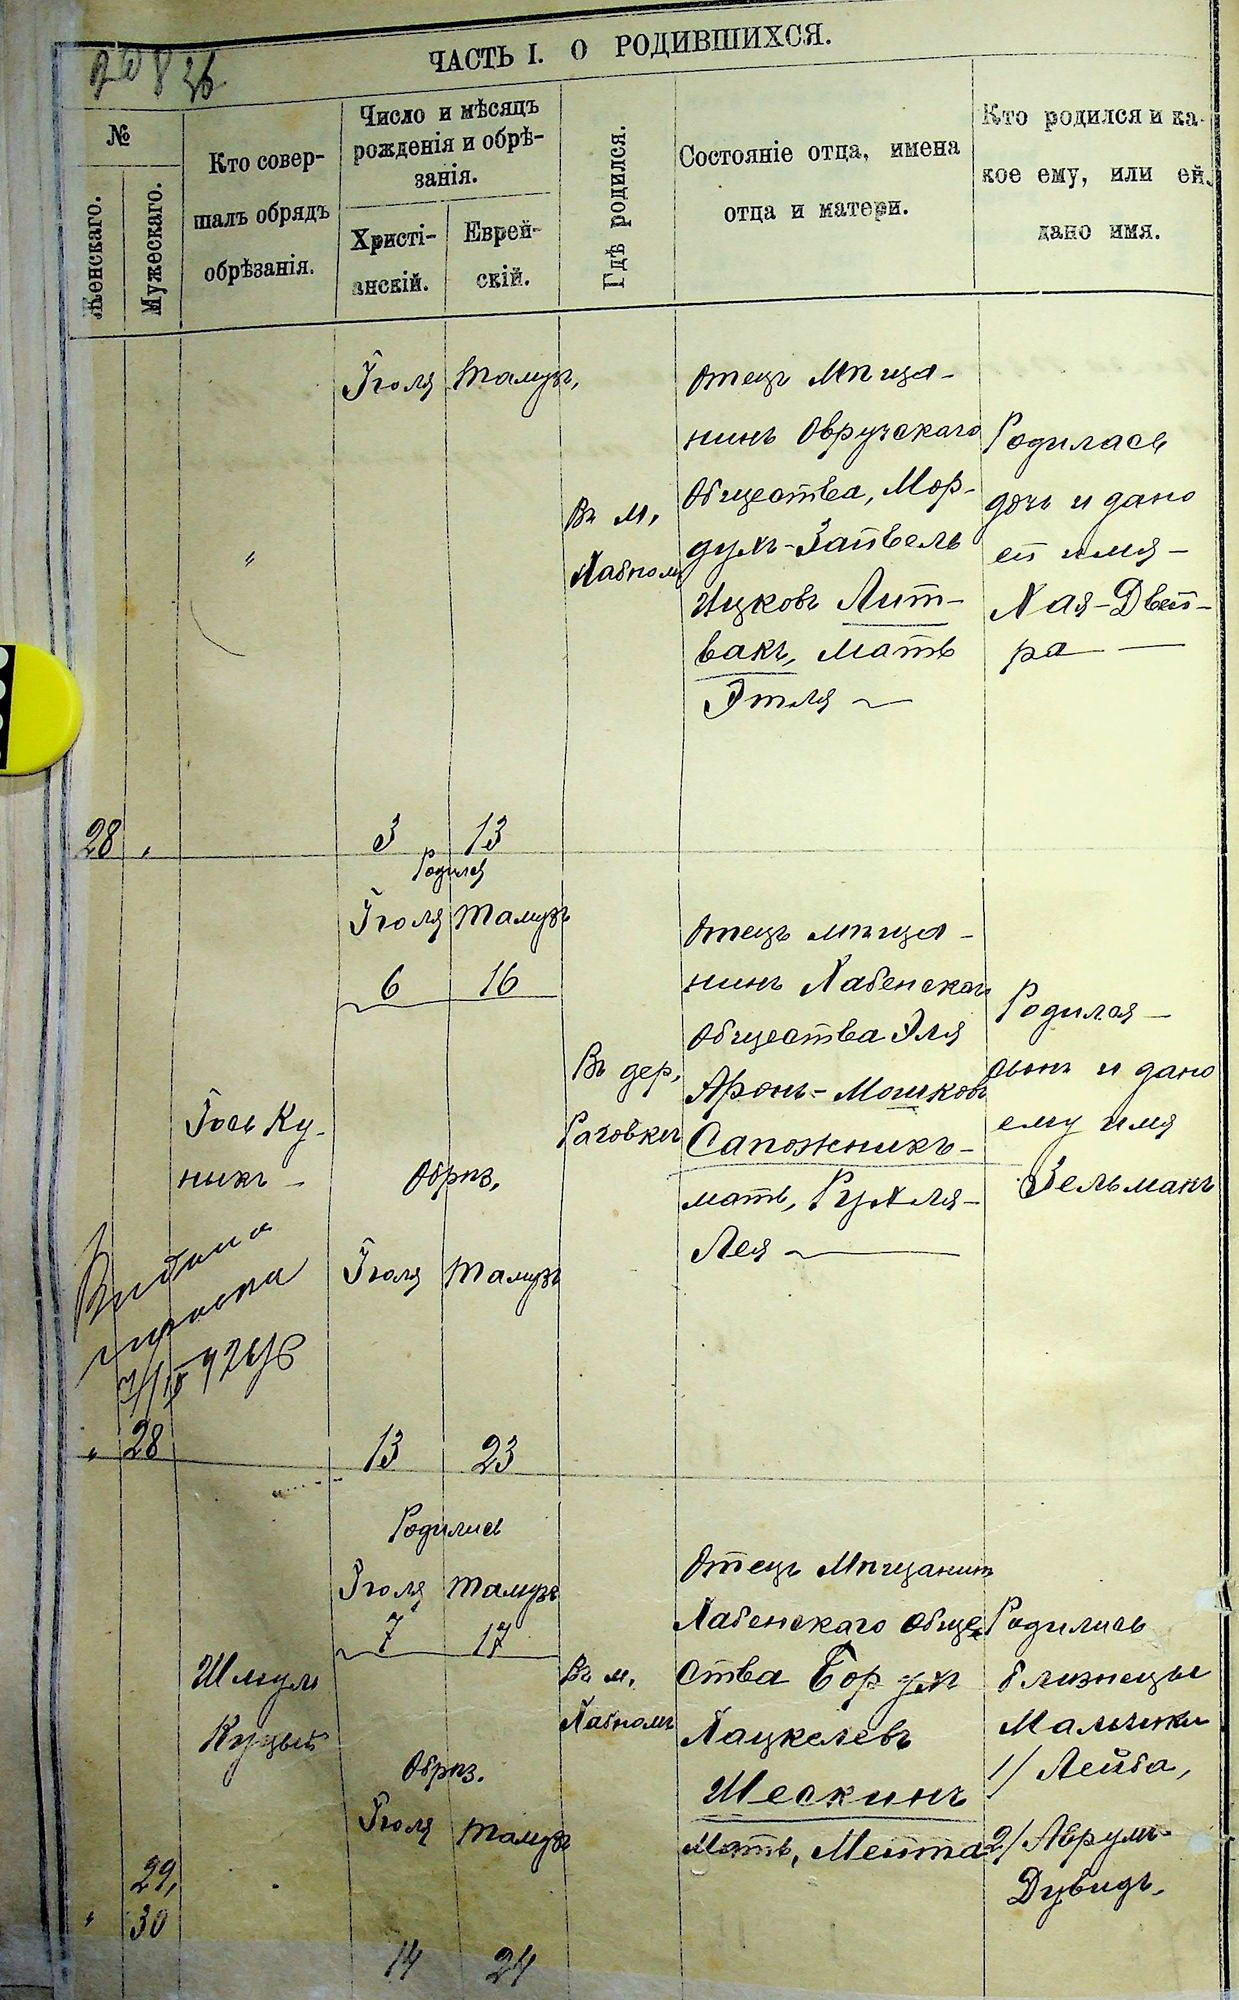 ЧАСТЬ I. О РОДИВШИХСЯ.
№
Женскаго.
Мужескаго.
Кто совер-
шалъ обрядъ
обрѣзанія.
Число и мѣсяцъ
рожденія и обрѣ-
занія.
Христі-
анскій.
Еврей-
скій.
Гдѣ родился.
Состояніе отца, имена
отца и матери.
Кто родился и ка-
кое ему, или ей,
дано имя.
28
"
Іюля
3
Тамузъ,
13
Въ м.
Хабномъ
Отецъ Мѣща-
нинъ Овручскаго
Общества, Мор-
духъ-Зайвель
Ицковъ Лит-
вакъ, мать
Этля
Родилась
дочь и дано
ей имя-
Хая-Двей-
ра
" 28
Іось Ку-
никъ -
Выдана
7/IV 924 г
Родился
Іюля Тамузъ
6 16
Обрѣз.
Іюля Тамузъ
13 23
Въ дер.
Раговкѣ
Отецъ мѣща-
нинъ Хабенскаго
Общества Эля
Аронъ-Мошковъ
Сапожникъ-
мать, Рухля-
Лея
Родился-
сынъ и дано
ему имя
Зельманъ
29,
" 30
Шмуль
Куцый
Родились
Іюля Тамузъ
7 17
Обрѣз.
Іюля Тамузъ
14 24
Въ м.
Хабномъ
Отецъ Мѣщанинъ
Хабенскаго обще-
ства Борухъ
Хацкелевъ
Шескинъ
Мать, Мейта
Родились
близнецы
Мальчики
1/ Лейба,
2/ Аврумъ-
Дувидъ.